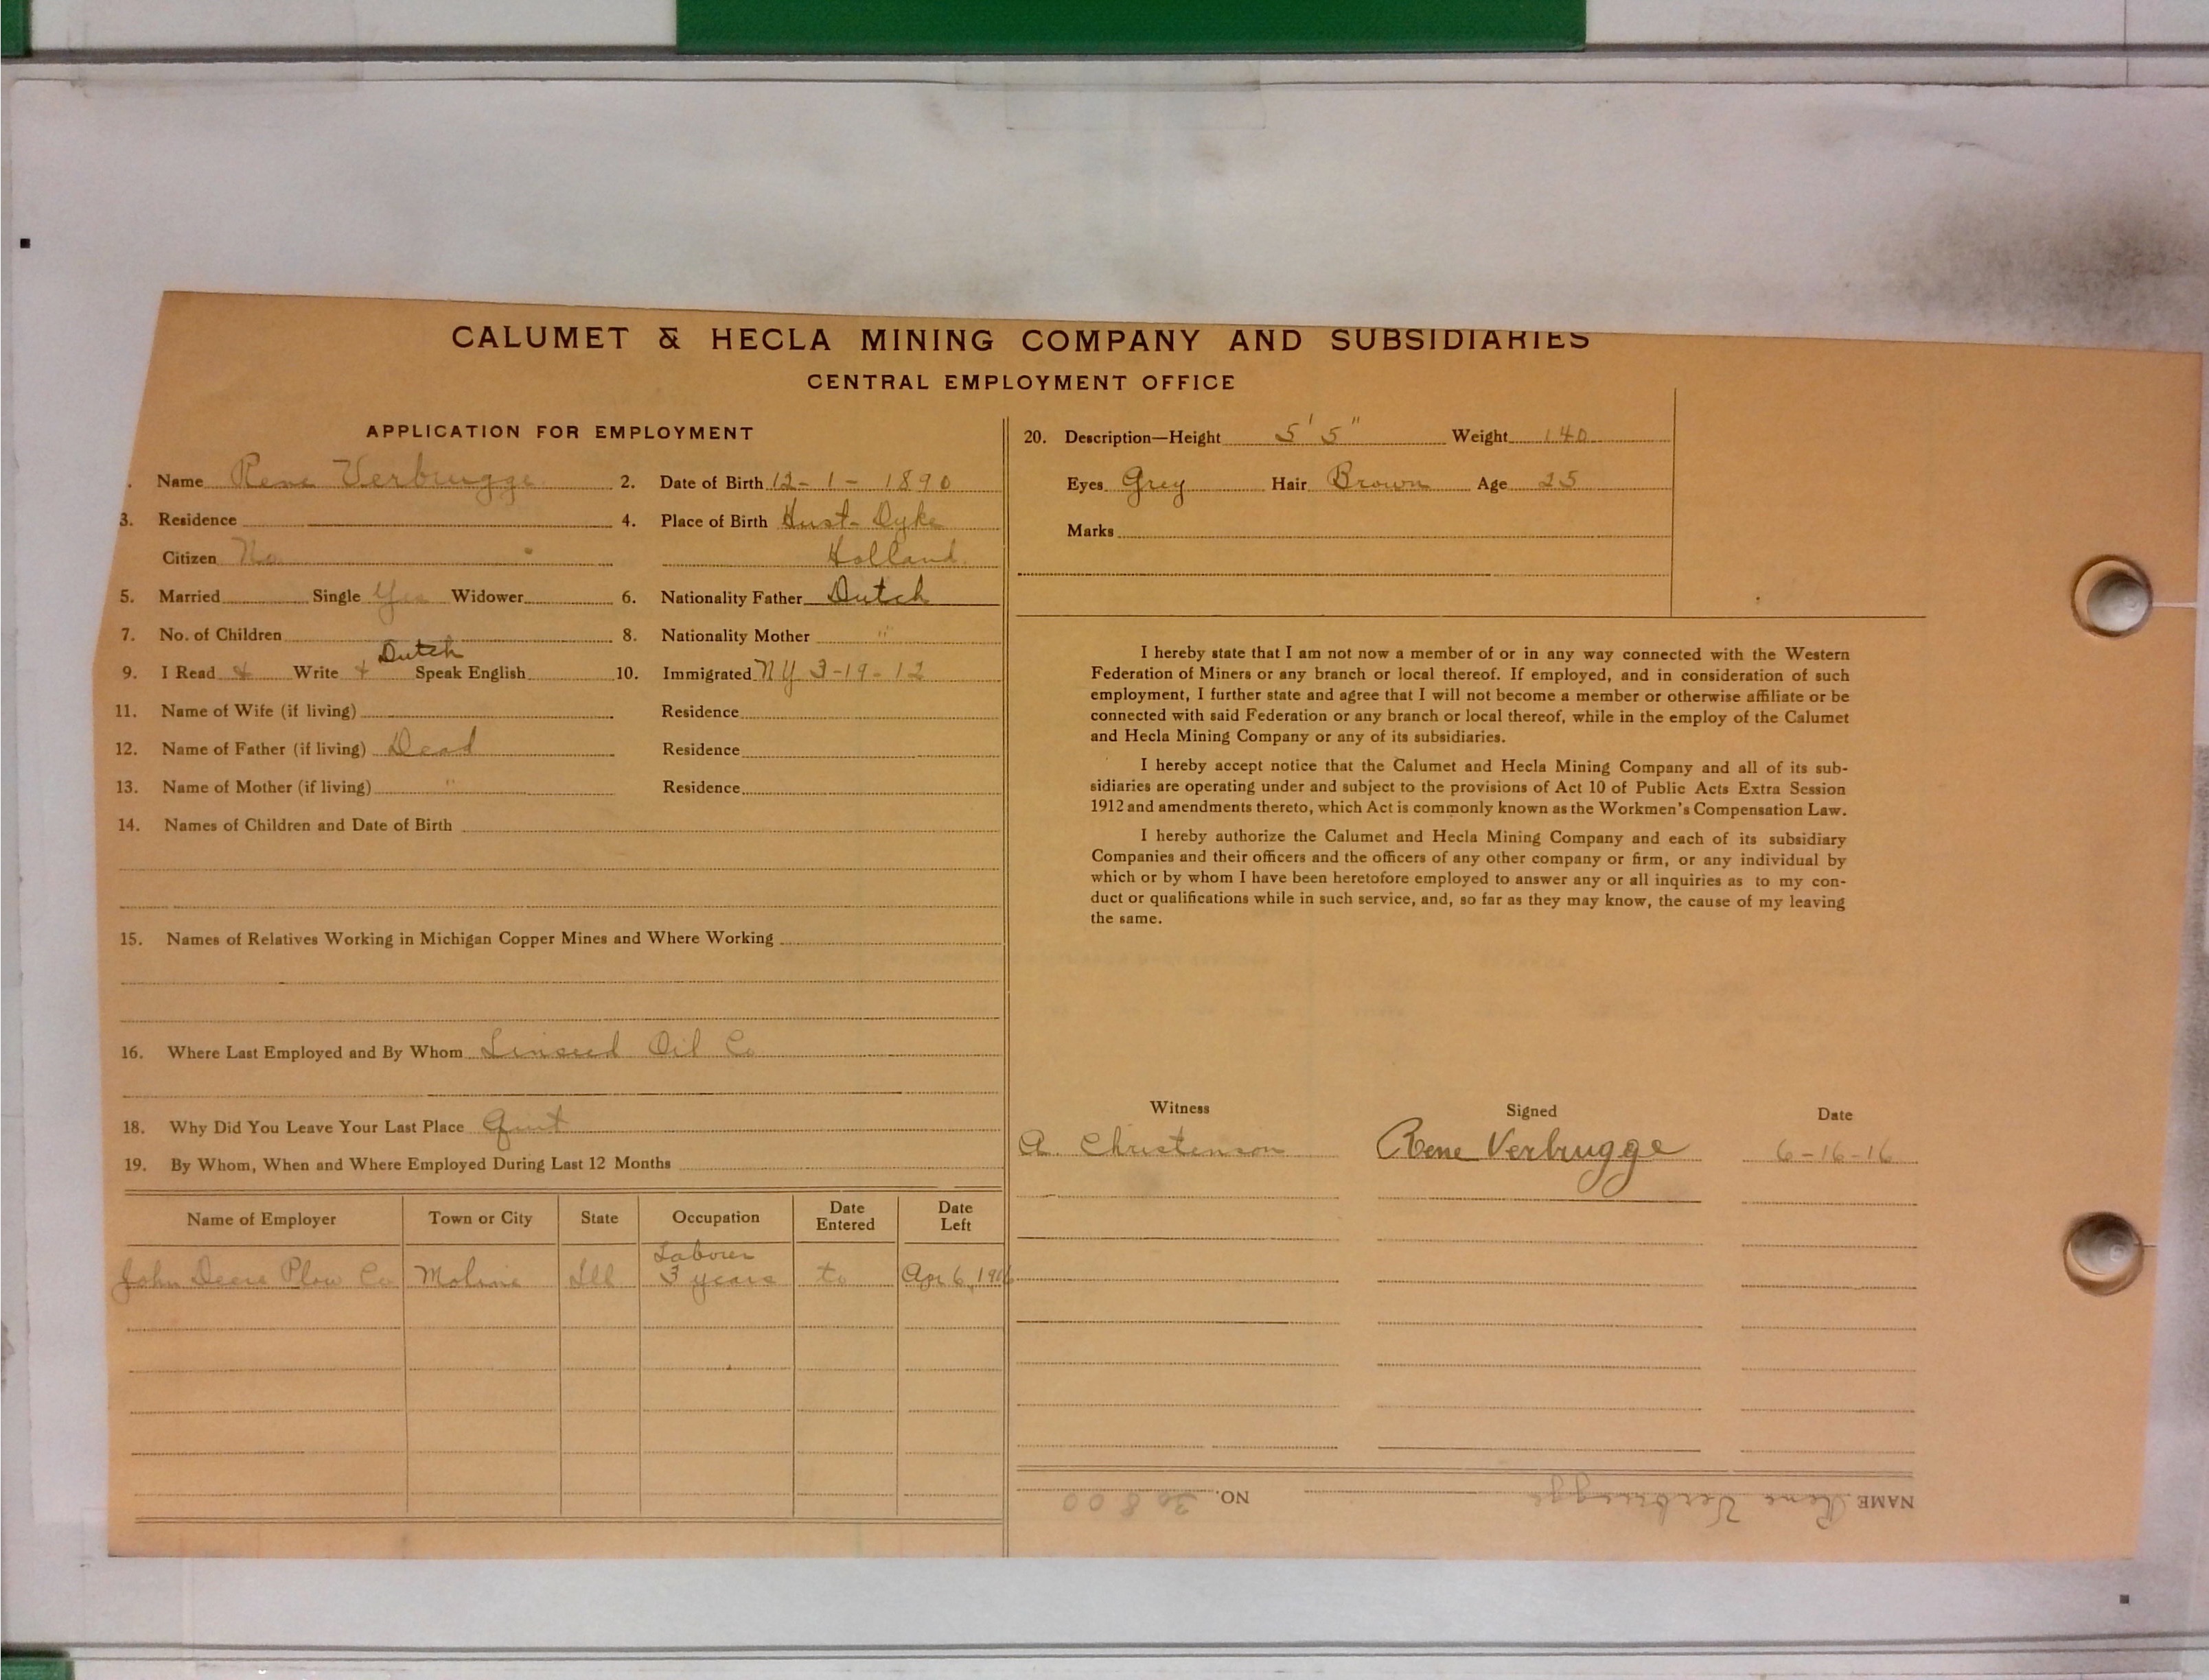 CALUMET & HECLA MINING COMPANY AND SUBSIDIARIES
CENTRAL EMPLOYMENT OFFICE
APPLICATION FOR EMPLOYMENT
. Name Rene Verbrugge 2. Date of Birth 12-1-1890
3. Residence 4. Place of Birth Hust-Dyke
Citizen No Holland
5. Married Single Yes Widower 6. Nationality Father Dutch
7. No. of Children 8. Nationality Mother "
Dutch
9. I Read & Write + Speak English 10. Immigrated NY 3-19-12
11. Name of Wife (if living) Residence
12. Name of Father (if living) Dead Residence
13. Name of Mother (if living) " Residence
14. Names of Children and Date of Birth
15. Names of Relatives Working in Michigan Copper Mines and Where Working
16. Where Last Employed and By Whom Linseed Oil Co
18. Why Did You Leave Your Last Place Quit
19. By Whom, When and Where Employed During Last 12 Months
Name of Employer Town or City State Occupation Date Entered Date Left
Labourer
John Deere Plow Co Moline Ill 3 years to Apr 6, 1916
20. Description—Height 5' 5" Weight 140
Eyes Grey Hair Brown Age 25
Marks
I hereby state that I am not now a member of or in any way connected with the Western
Federation of Miners or any branch or local thereof. If employed, and in consideration of such
employment, I further state and agree that I will not become a member or otherwise affiliate or be
connected with said Federation or any branch or local thereof, while in the employ of the Calumet
and Hecla Mining Company or any of its subsidiaries.
I hereby accept notice that the Calumet and Hecla Mining Company and all of its sub-
sidiaries are operating under and subject to the provisions of Act 10 of Public Acts Extra Session
1912 and amendments thereto, which Act is commonly known as the Workmen's Compensation Law.
I hereby authorize the Calumet and Hecla Mining Company and each of its subsidiary
Companies and their officers and the officers of any other company or firm, or any individual by
which or by whom I have been heretofore employed to answer any or all inquiries as to my con-
duct or qualifications while in such service, and, so far as they may know, the cause of my leaving
the same.
Witness Signed Date
A. Christenson Rene Verbrugge 6-16-16
NAME Rene Verbrugge NO. 30800